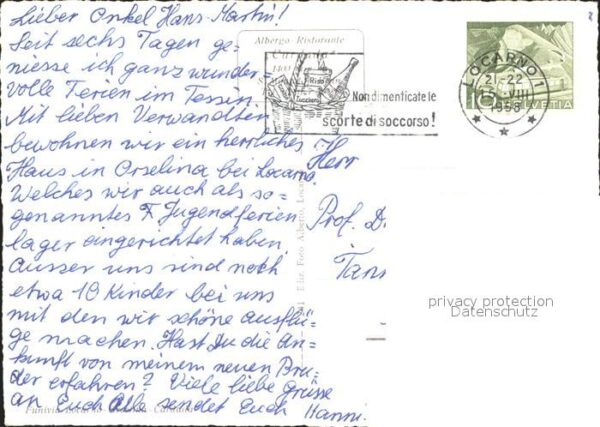 Lieber Onkel Hans-Martin!
Seit sechs Tagen ge-
niesse ich ganz wunder
volle Ferien im Tessin.
Mit lieben Verwandten
bewohnen wir ein herrliches
Haus in Orselina bei Locarno.
Welches wir auch als so-
genanntes F. Jugendferien
lager eingerichtet haben.
Ausser uns sind noch
etwa 10 Kinder bei uns
mit den wir schöne Ausflü-
ge machen. Hast Du die An-
kunft von meinem neuen Bru-
der erfahren? Viele liebe Grüsse
an Euch Alle sendet Euch Hanni.
Albergo-Ristorante
Cardada
Riso
Zucchero
Non dimenticate le
scorte di soccorso!
LOCARNO 1
21-22
15.VIII
1958
10
HELVETIA
Herr
Prof. D
Tann
Ediz. Foto Alberto, Locarno
Funivia Locarno
Cardada
privacy protection
Datenschutz